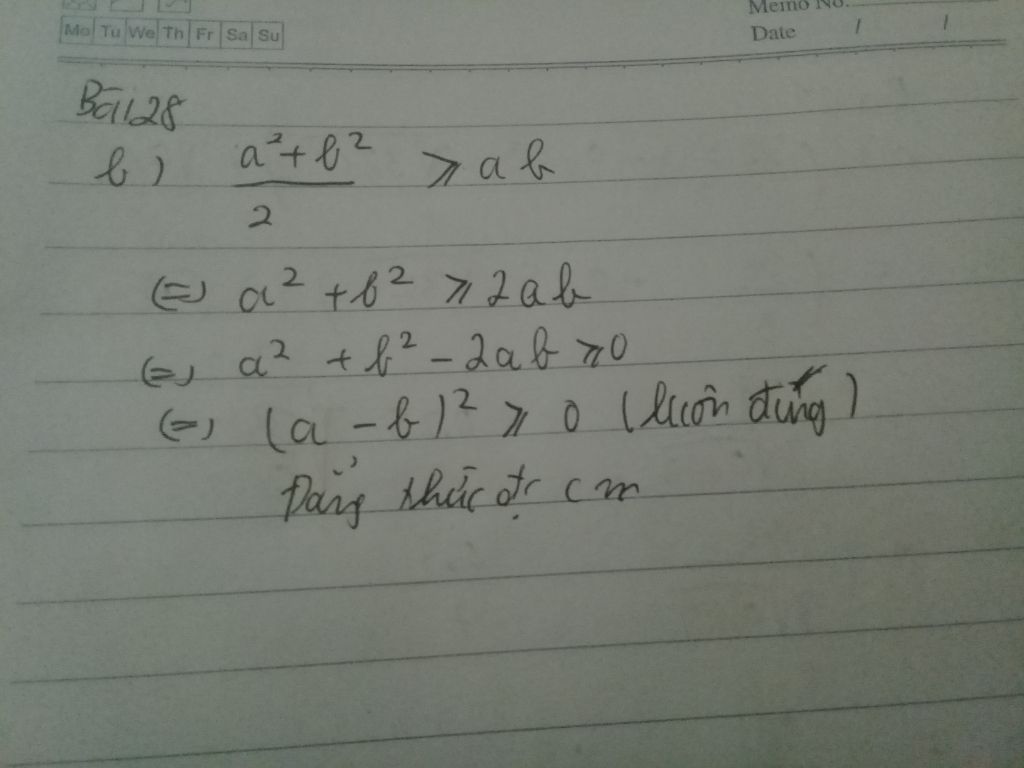 Memo No.
Mo Tu We Th Fr Sa Su
Date / /
Bài 28
b) a² + b² / 2 ⩾ ab
(=) a² + b² ⩾ 2ab
(=) a² + b² - 2ab ⩾ 0
(=) (a - b)² ⩾ 0 (luôn đúng)
Đẳng thức đc cm